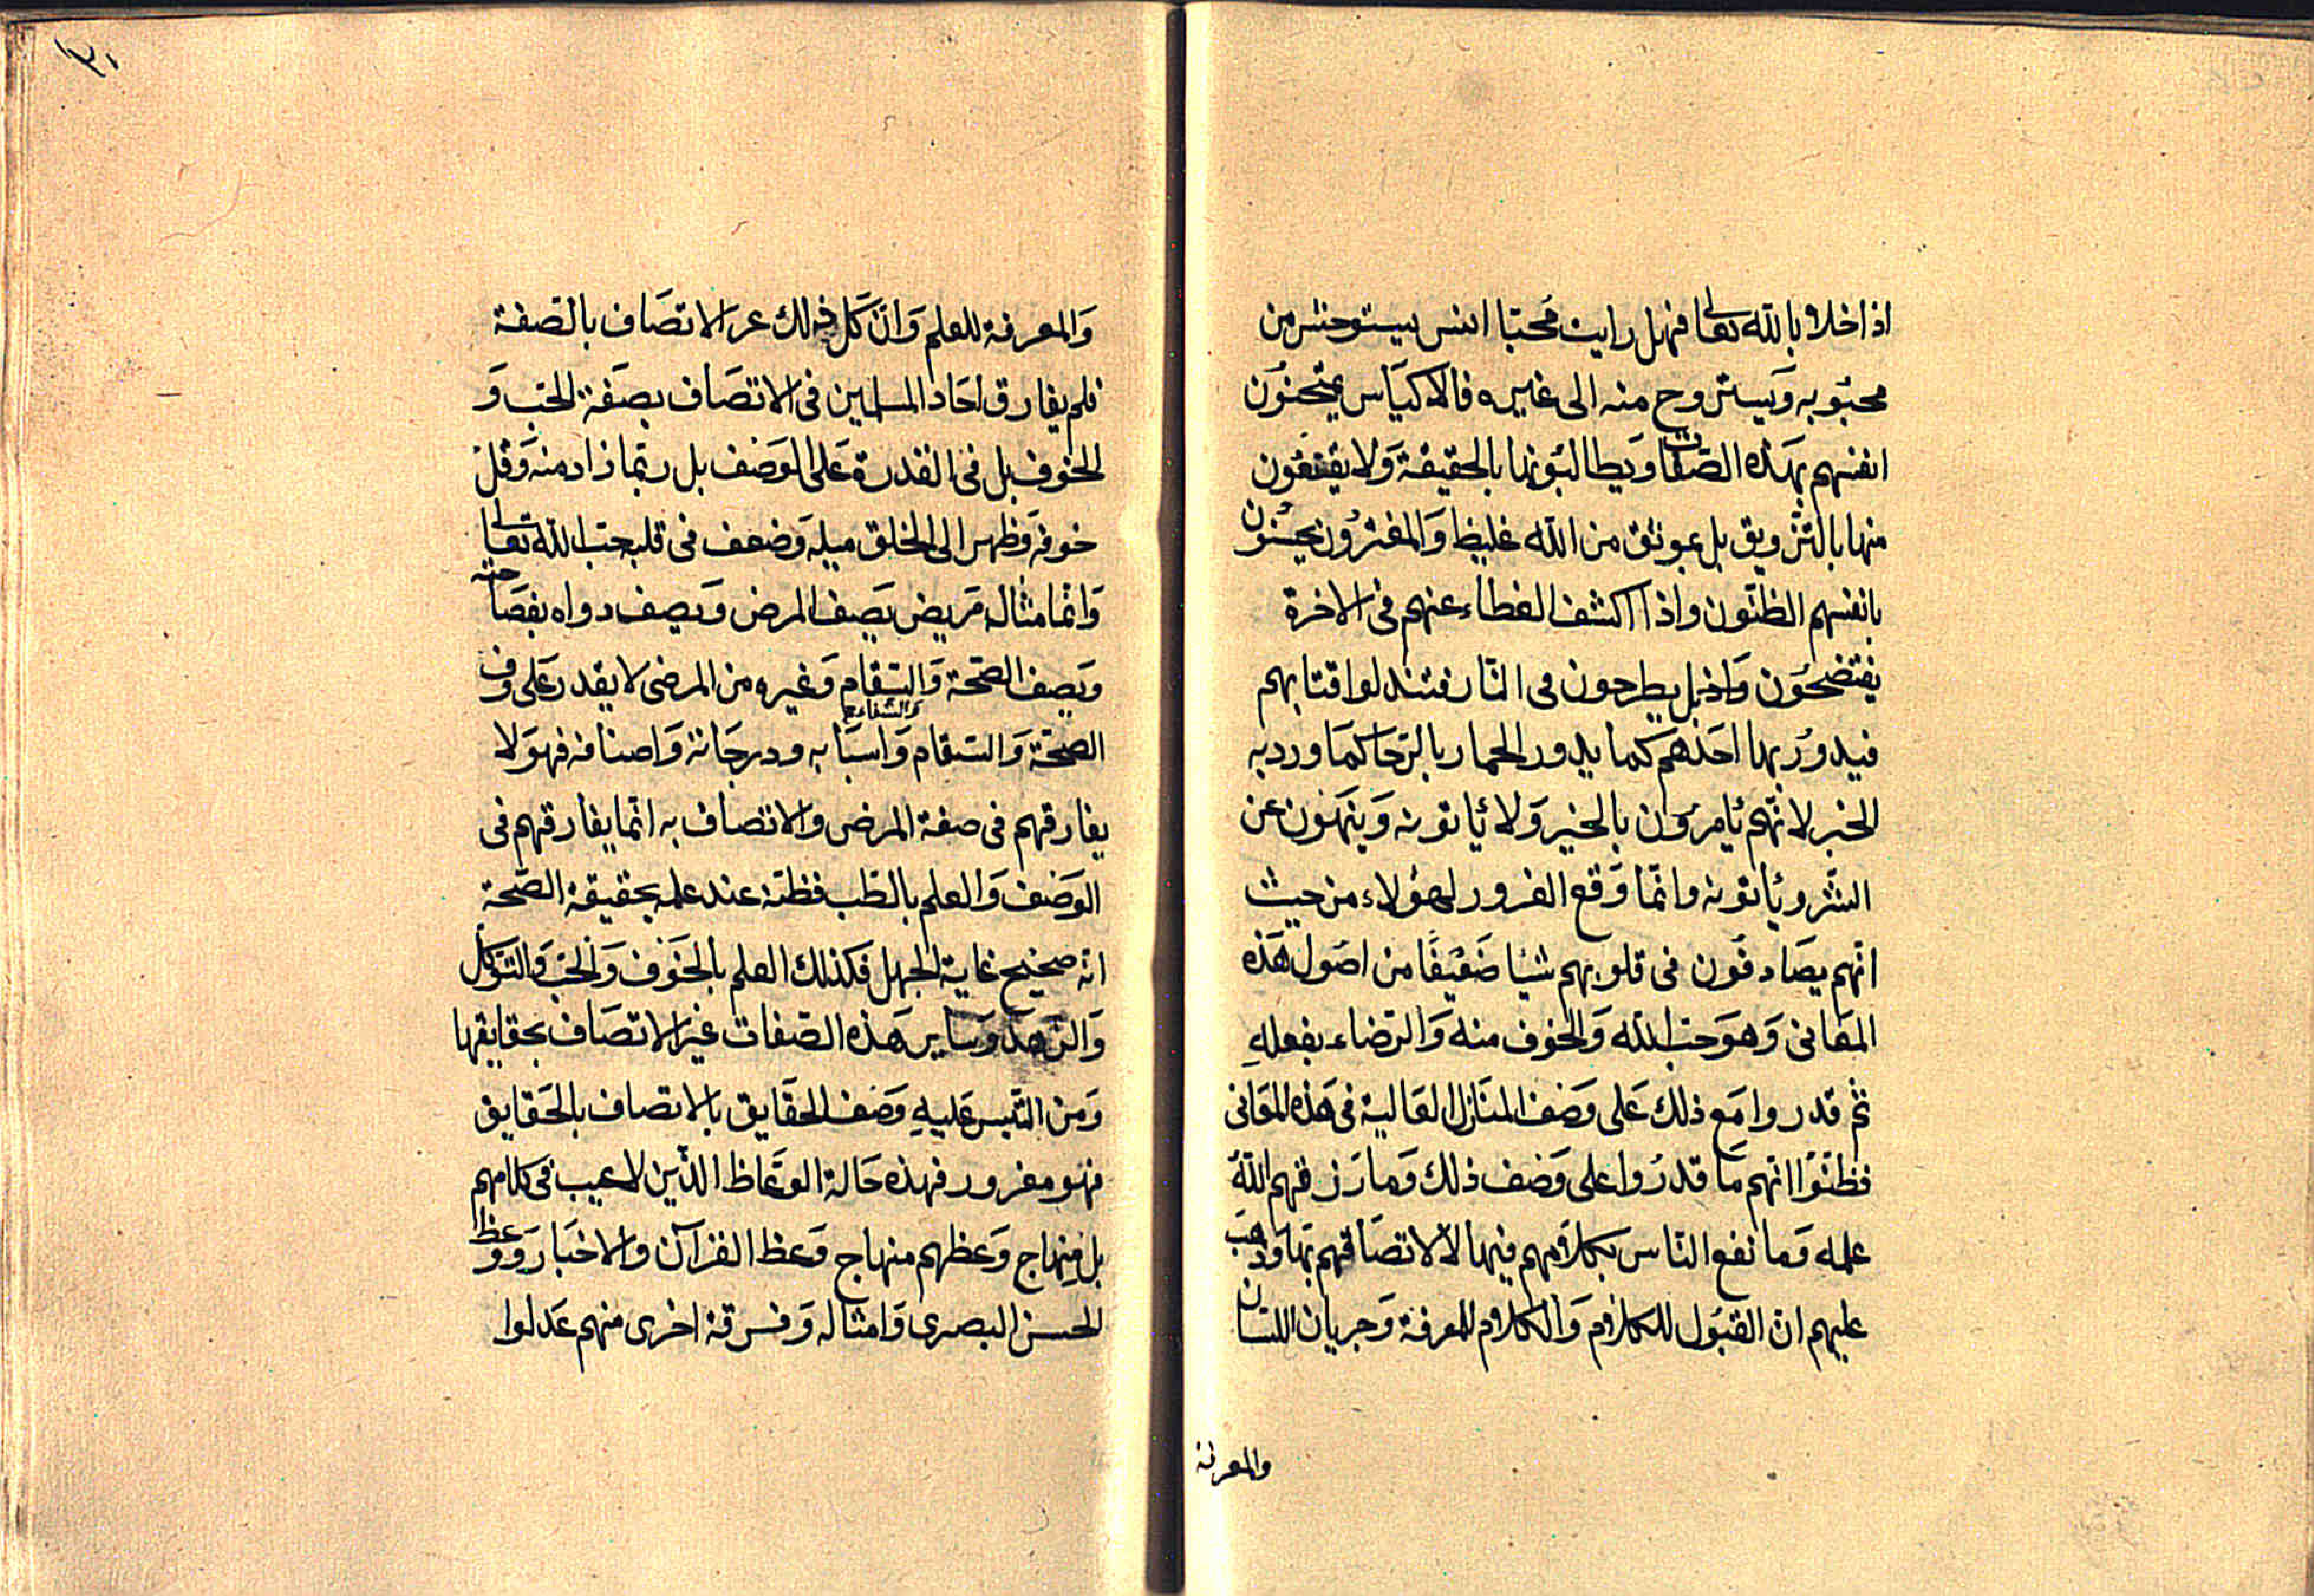 اذا خلا بالله تعالى فهل رايت محبّا انس يستوحش من
محبوبه ويستروح منه الى غيره فالاكياس يمتحنون
انفسهم بهذه الصّفات ويطالبونها بالحقيقة ولا يقنعون
منها بالتزويق بل بموثق من الله غليظ والمغترّون يحسنون
بانفسهم الظنّون واذا اكشف الغطاء عنهم فى الاخرة
يفتضحون بل يطرحون فى النّار فتندلو اقتابهم
فيدور بها احدهم كما يدور الحمار بالرّحا كما ورد به
الخبر لانّهم يأمرون بالخير ولا يأتونه وينهون عن
الشّر ويأتونه وانّما وقع الغرور لهؤلاء من حيث
انّهم يصادفون فى قلوبهم شيئا ضعيفًا من اصول هذه
المعانى وهو حبّ الله والخوف منه والرّضاء بفعله
ثمّ قدروا مع ذلك على وصف المنازل العالية فى هذه المعانى
فظنّوا انّهم ما قدروا على وصف ذلك وما رزقهم اللهُ
علمه وما نفع النّاس بكلامهم فيها الا لاتصافهم بها وذهب
عليهم ان القبول للكلام والكلام للمعرفة وجريان اللسان
والمعرفة
١٣٠
والمعرفة للعلم وانّ كلّ ذلك غير الاتصاف بالصّفة
فلم يفارق احاد المسلمين فى الاتصاف بصفة الحبّ و
الخوف بل فى القدرة على الوصف بل ربّما زاد منه وقلّ
خوفه وظهر الى الخلق ميله وضعف فى قلبه حبّ الله تعالى
وانّما مثاله مريض يصف المرض ويصف دواه بفصاحته
ويصف الصّحة والشفاء وغيره من المرضى لا يقدر على وصف
الصّحّة والسّقام واسبابه ودرجاته واصنافه فهو لا
يفارقهم فى صفة المرض والاتصاف به انّما يفارقهم فى
الوصف والعلم بالطّب فظنّه عند علمه بحقيقة الصّحة
انّه صحيح غاية الجهل فكذلك العلم بالخوف والحبّ والتوكّل
والزّهد وساير هذه الصّفات غير الاتصاف بحقايقها
ومن التبس عليه وصف الحقايق بالاتصاف بالحقايق
فهو مغرور فهذه حالة الوعّاظ الذّين لا عيب فى كلامهم
بل منهاج وعظهم منهاج وعظ القرآن والاخبار ووعظ
الحسن البصرى وامثاله وفرقة اخرى منهم عدلوا